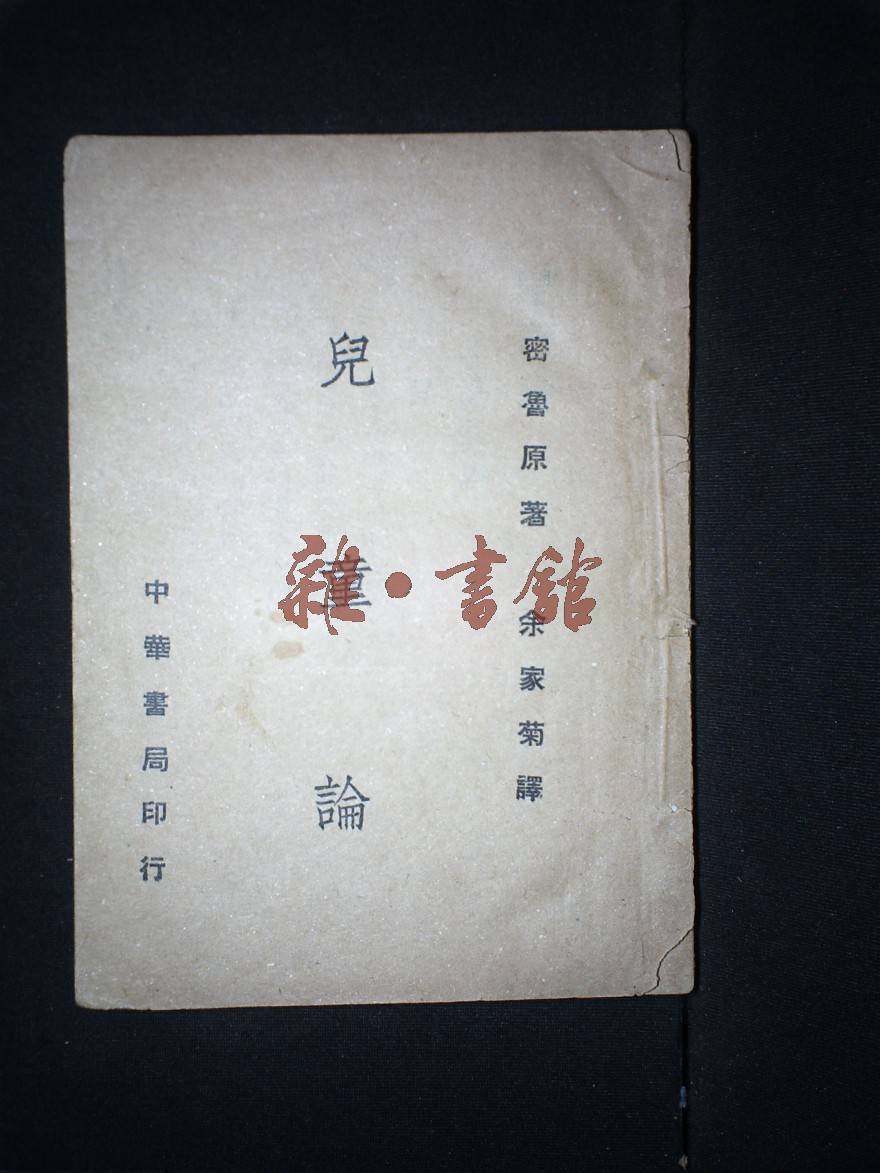 密魯原著 余家菊譯
兒童論
中華書局印行
雜·書館